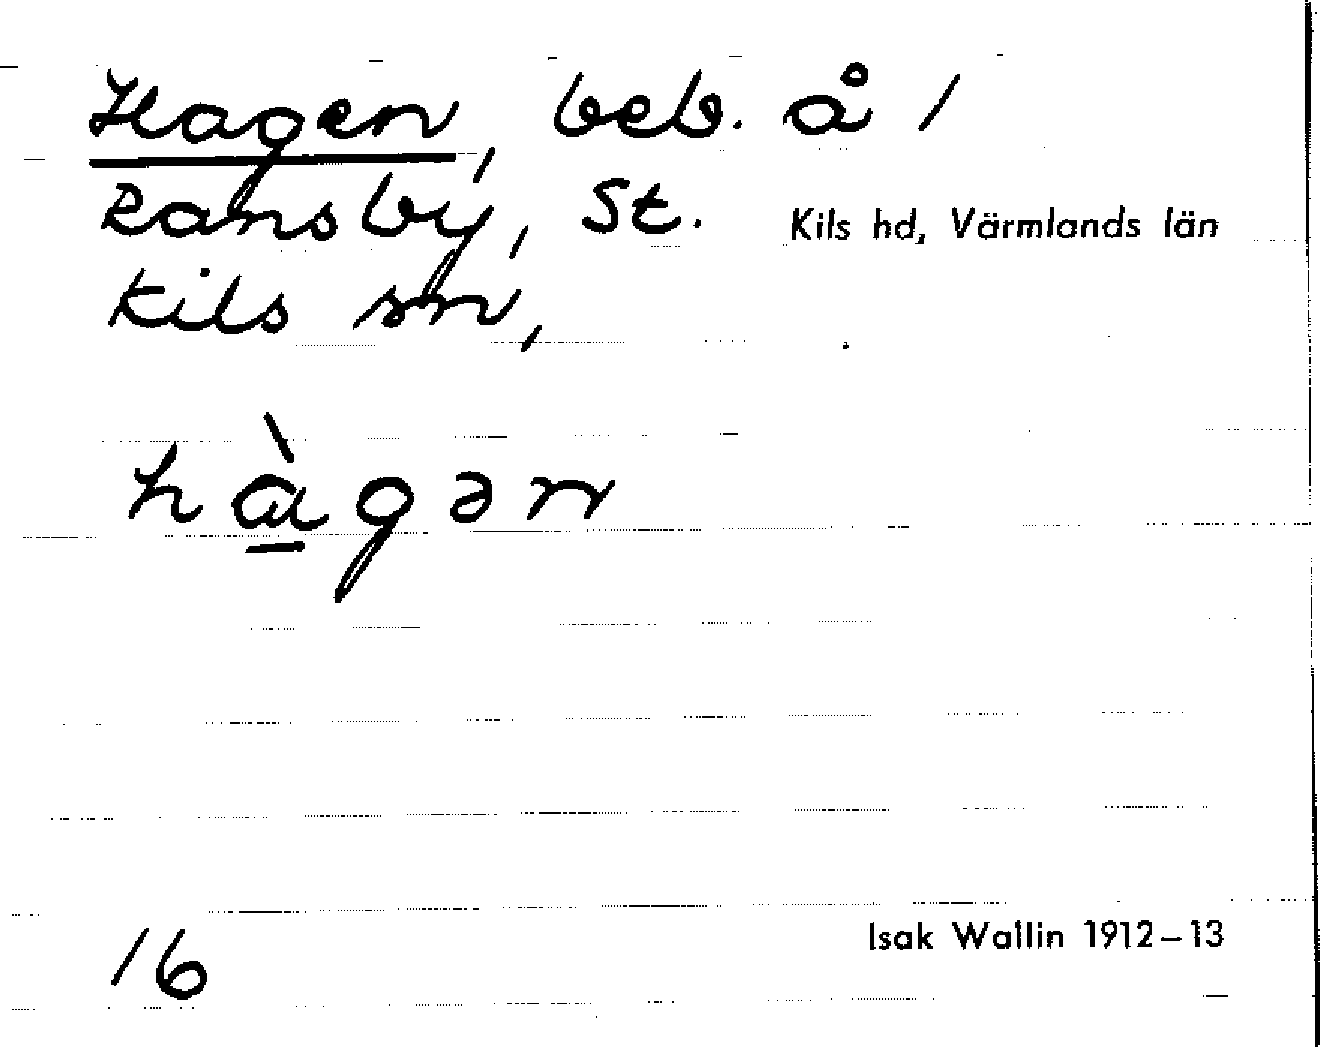 Hagen, beb. å 1
Ransby, St. Kils hd, Värmlands län
Kils sn,
hàgən
16
Isak Wallin 1912–13